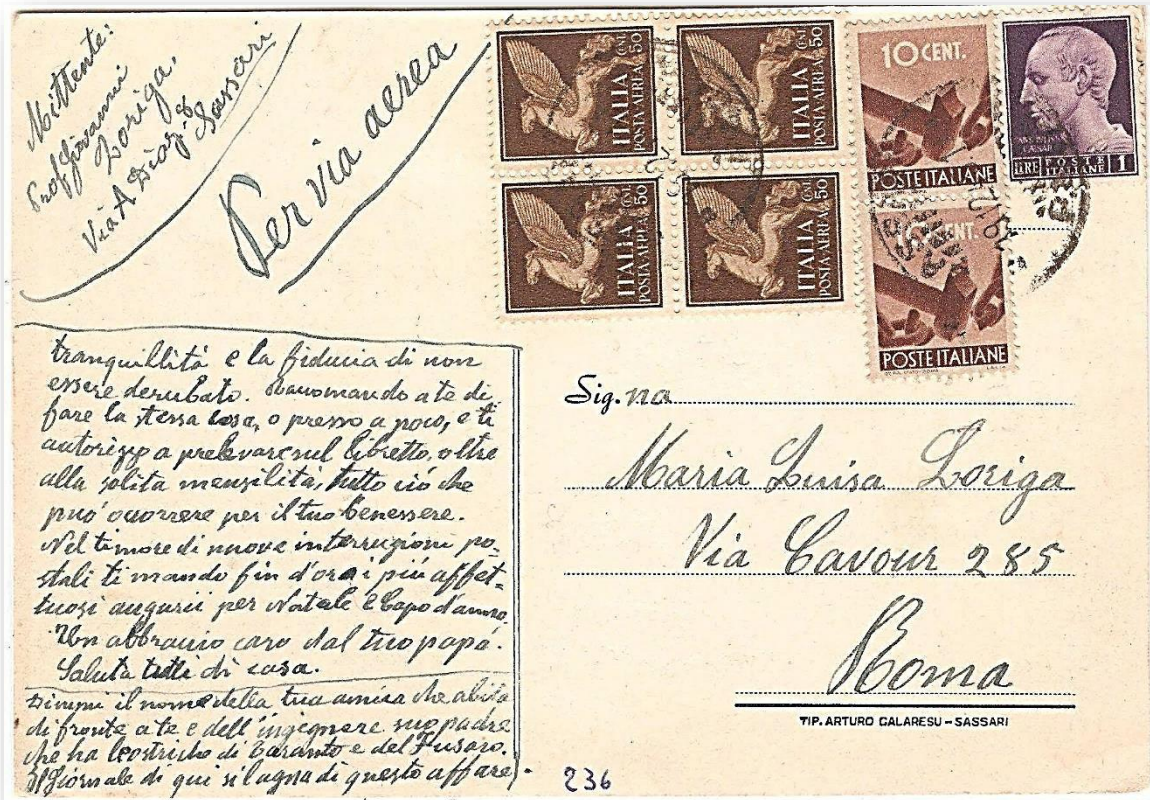 Mittente:
Prof Giovanni
Loriga,
Via A Diaz 8
Sassari
Per via aerea
ITALIA
POSTA AEREA
CNT. 50
ITALIA
POSTA AEREA
CNT. 50
ITALIA
POSTA AEREA
CNT. 50
ITALIA
POSTA AEREA
CNT. 50
10 CENT.
POSTE ITALIANE
CENT.
POSTE ITALIANE
CAESAR
LIRE POSTE ITALIANE 1
tranquillità e la fiducia di non
essere derubato. Raccomando a te di
fare la stessa cosa, o presso a poco, e ti
autorizzo a prelevare sul libretto, oltre
alla solita mensilità, tutto ciò che
può occorrere per il tuo benessere.
Nel timore di nuove interruzioni po-
stali ti mando fin d'ora i più affet-
tuosi augurii per Natale e Capo d'anno.
Un abbraccio caro dal tuo papà.
Saluta tutti di casa.
Dimmi il nome della tua amica che abita
di fronte a te e dell'ingegnere suo padre
che ha le ostriche di Taranto e del Fusaro.
Il Giornale di qui si lagna di questo affare).
Sig.na
Maria Luisa Loriga
Via Cavour 285
Roma
TIP. ARTURO GALARESU - SASSARI
236